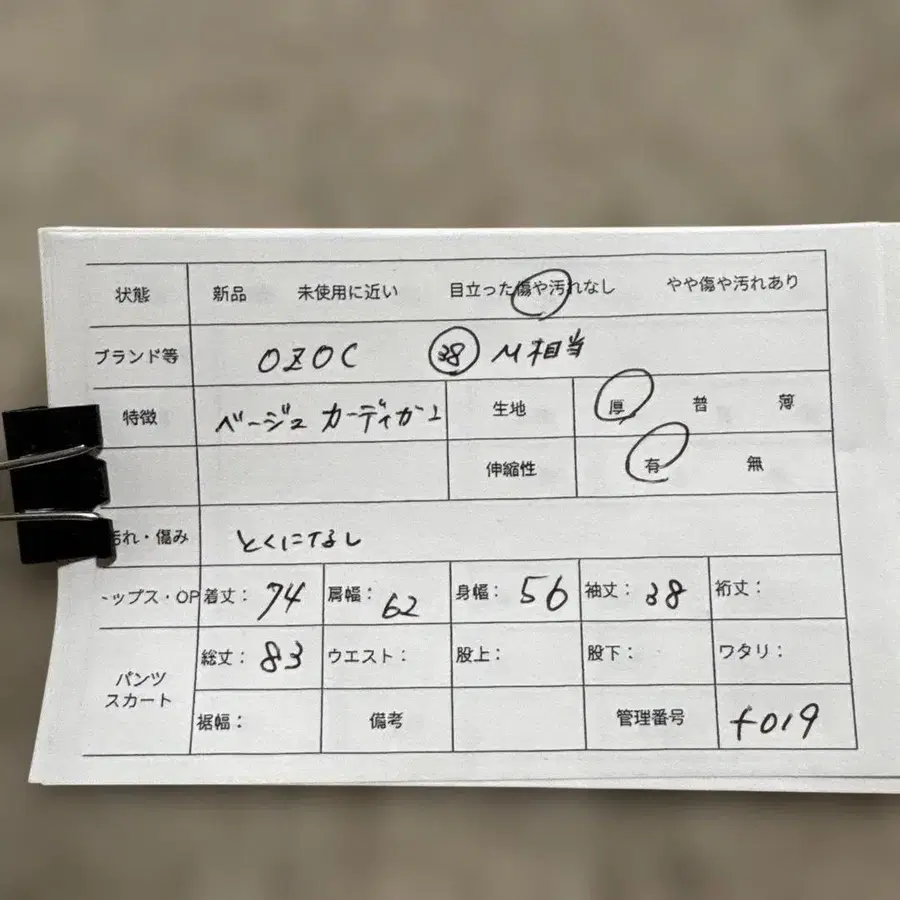 状態 新品 未使用に近い 目立った傷や汚れなし やや傷や汚れあり
ブランド等 OZOC 38 M相当
特徴 ベージュ カーディガン 生地 厚 普 薄
伸縮性 有 無
汚れ・傷み とくになし
トップス・OP 着丈: 74 肩幅: 62 身幅: 56 袖丈: 38 裄丈:
パンツ スカート 総丈: 83 ウエスト: 股上: 股下: ワタリ:
裾幅: 備考 管理番号 t019